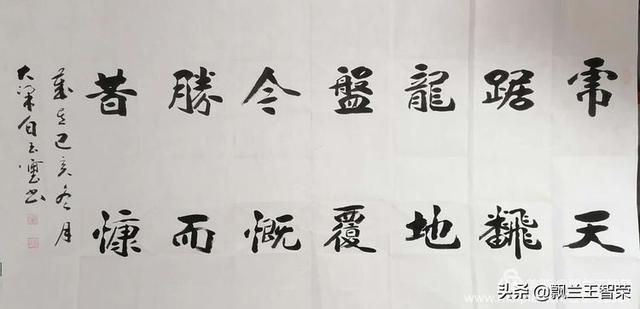 虎踞龍盤今勝昔
天飜地覆慨而慷
歲在己亥冬月
大梁白玉書
头条 @飘兰王智荣